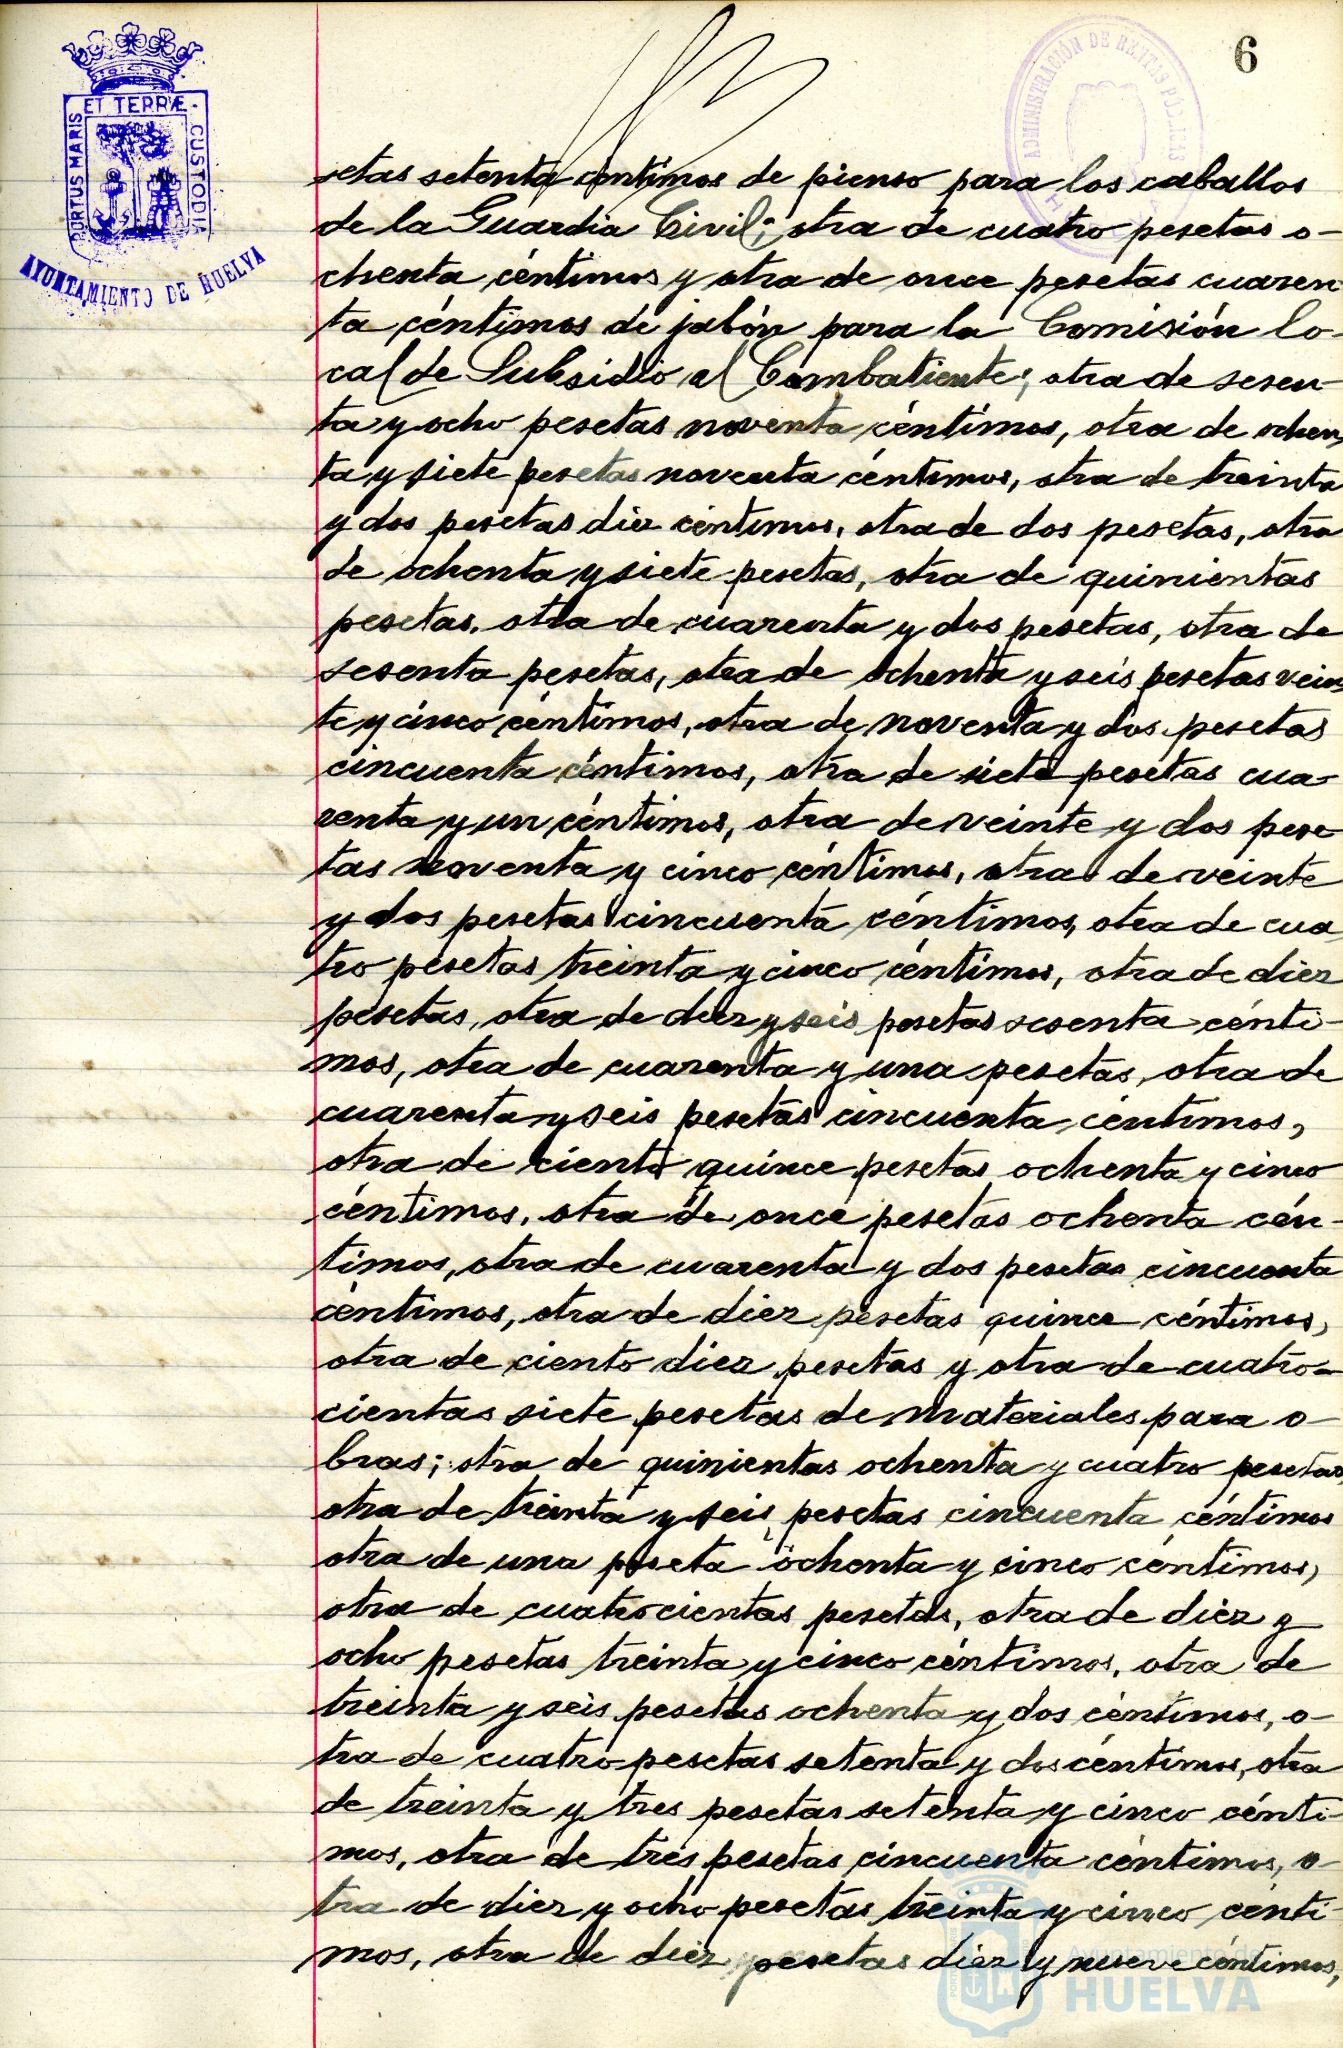 6
ADMINISTRACIÓN DE RENTAS PÚBLICAS
PORTUS MARIS ET TERRÆ CUSTODIA
AYUNTAMIENTO DE HUELVA
setas setenta céntimos de pienso para los caballos
de la Guardia Civil; otra de cuatro pesetas o-
chenta céntimos y otra de once pesetas cuaren
ta céntimos de jabón para la Comisión lo-
cal de Subsidio al Combatiente; otra de sesen-
ta y ocho pesetas noventa céntimos, otra de ochen
ta y siete pesetas noventa céntimos, otra de treinta
y dos pesetas diez céntimos, otra de dos pesetas, otra
de ochenta y siete pesetas, otra de quinientas
pesetas, otra de cuarenta y dos pesetas, otra de
sesenta pesetas, otra de ochenta y seis pesetas vein
te y cinco céntimos, otra de noventa y dos pesetas
cincuenta céntimos, otra de siete pesetas cua-
renta y un céntimos, otra de veinte y dos pese
tas noventa y cinco céntimos, otra de veinte
y dos pesetas cincuenta céntimos, otra de cua
tro pesetas treinta y cinco céntimos, otra de diez
pesetas, otra de diez y seis pesetas sesenta cénti-
mos, otra de cuarenta y una pesetas, otra de
cuarenta y seis pesetas cincuenta céntimos,
otra de ciento quince pesetas ochenta y cinco
céntimos, otra de once pesetas ochenta cén-
timos, otra de cuarenta y dos pesetas cincuenta
céntimos, otra de diez pesetas quince céntimos,
otra de ciento diez pesetas y otra de cuatro-
cientas siete pesetas de materiales para o-
bras; otra de quinientas ochenta y cuatro pesetas,
otra de treinta y seis pesetas cincuenta céntimos
otra de una peseta ochenta y cinco céntimos,
otra de cuatrocientas pesetas, otra de diez y
ocho pesetas treinta y cinco céntimos, otra de
treinta y seis pesetas ochenta y dos céntimos, o-
tra de cuatro pesetas setenta y dos céntimos, otra
de treinta y tres pesetas setenta y cinco cénti-
mos, otra de tres pesetas cincuenta céntimos, o-
tra de diez y ocho pesetas treinta y cinco cénti-
mos, otra de diez pesetas diez y nueve céntimos,
Ayuntamiento de
HUELVA